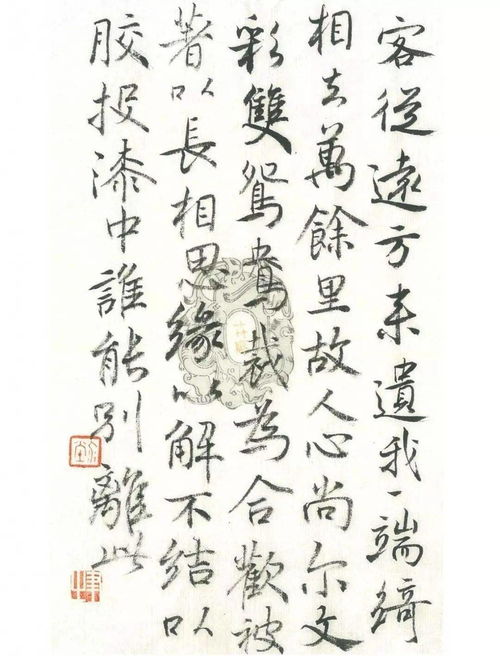 客從遠方来遺我一端綺
相去萬餘里故人心尚尔文
彩雙鴛鴦裁為合歡被
著以長相思緣以解不結以
胶投漆中誰能別離此